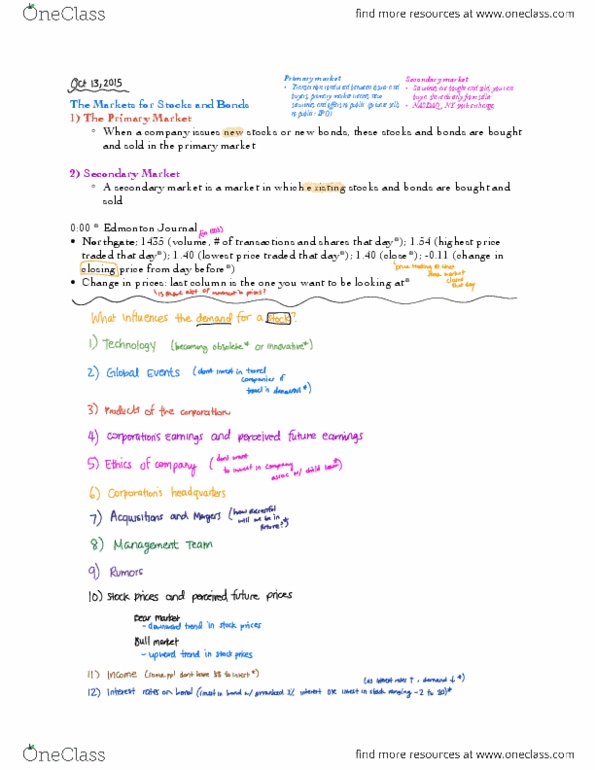 OneClass
find more resources at www.oneclass.com
Oct 13, 2015
Primary market
Secondary market
NASDAQ, NY stock exchange
The Markets for Stocks and Bonds
1) The Primary Market
When a company issues new stocks or new bonds, these stocks and bonds are bought
and sold in the primary market
2) Secondary Market
A secondary market is a market in which existing stocks and bonds are bought and
sold
0:00 * Edmonton Journal
(in 100s)
Northgate; 1435 (volume, # of transactions and shares that day*); 1.54 (highest price
traded that day*); 1.40 (lowest price traded that day*); 1.40 (close*); -0.11 (change in
closing price from day before*)
price trading at when
stock market
closed
that day
Change in prices: last column is the one you want to be looking at*
is there alot of movement in prices?
What influences the demand for a stock?
1) Technology (becoming obsolete* or innovative*)
2) Global Events (dont invest in travel
companies if
travel is dangerous*)
3) Products of the corporation
4) Corporation's earnings and perceived future earnings
5) Ethics of company (dont want
to invest in company
assoc w/ child labor*)
6) Corporation's headquarters
7) Acquisitions and Mergers (how successful
will we be in
future?*)
8) Management Team
9) Rumors
10) Stock prices and perceived future prices
Bear market
- downward trend in stock prices
Bull market
- upward trend in stock prices
11) Income (some ppl don't have $$ to invest*)
(as interest rates ↑, demand ↓*)
12) Interest rates on bond (invest in bond w/ 3% interest OR invest in stock ranging -2 to 20)*
OneClass
find more resources at www.oneclass.com